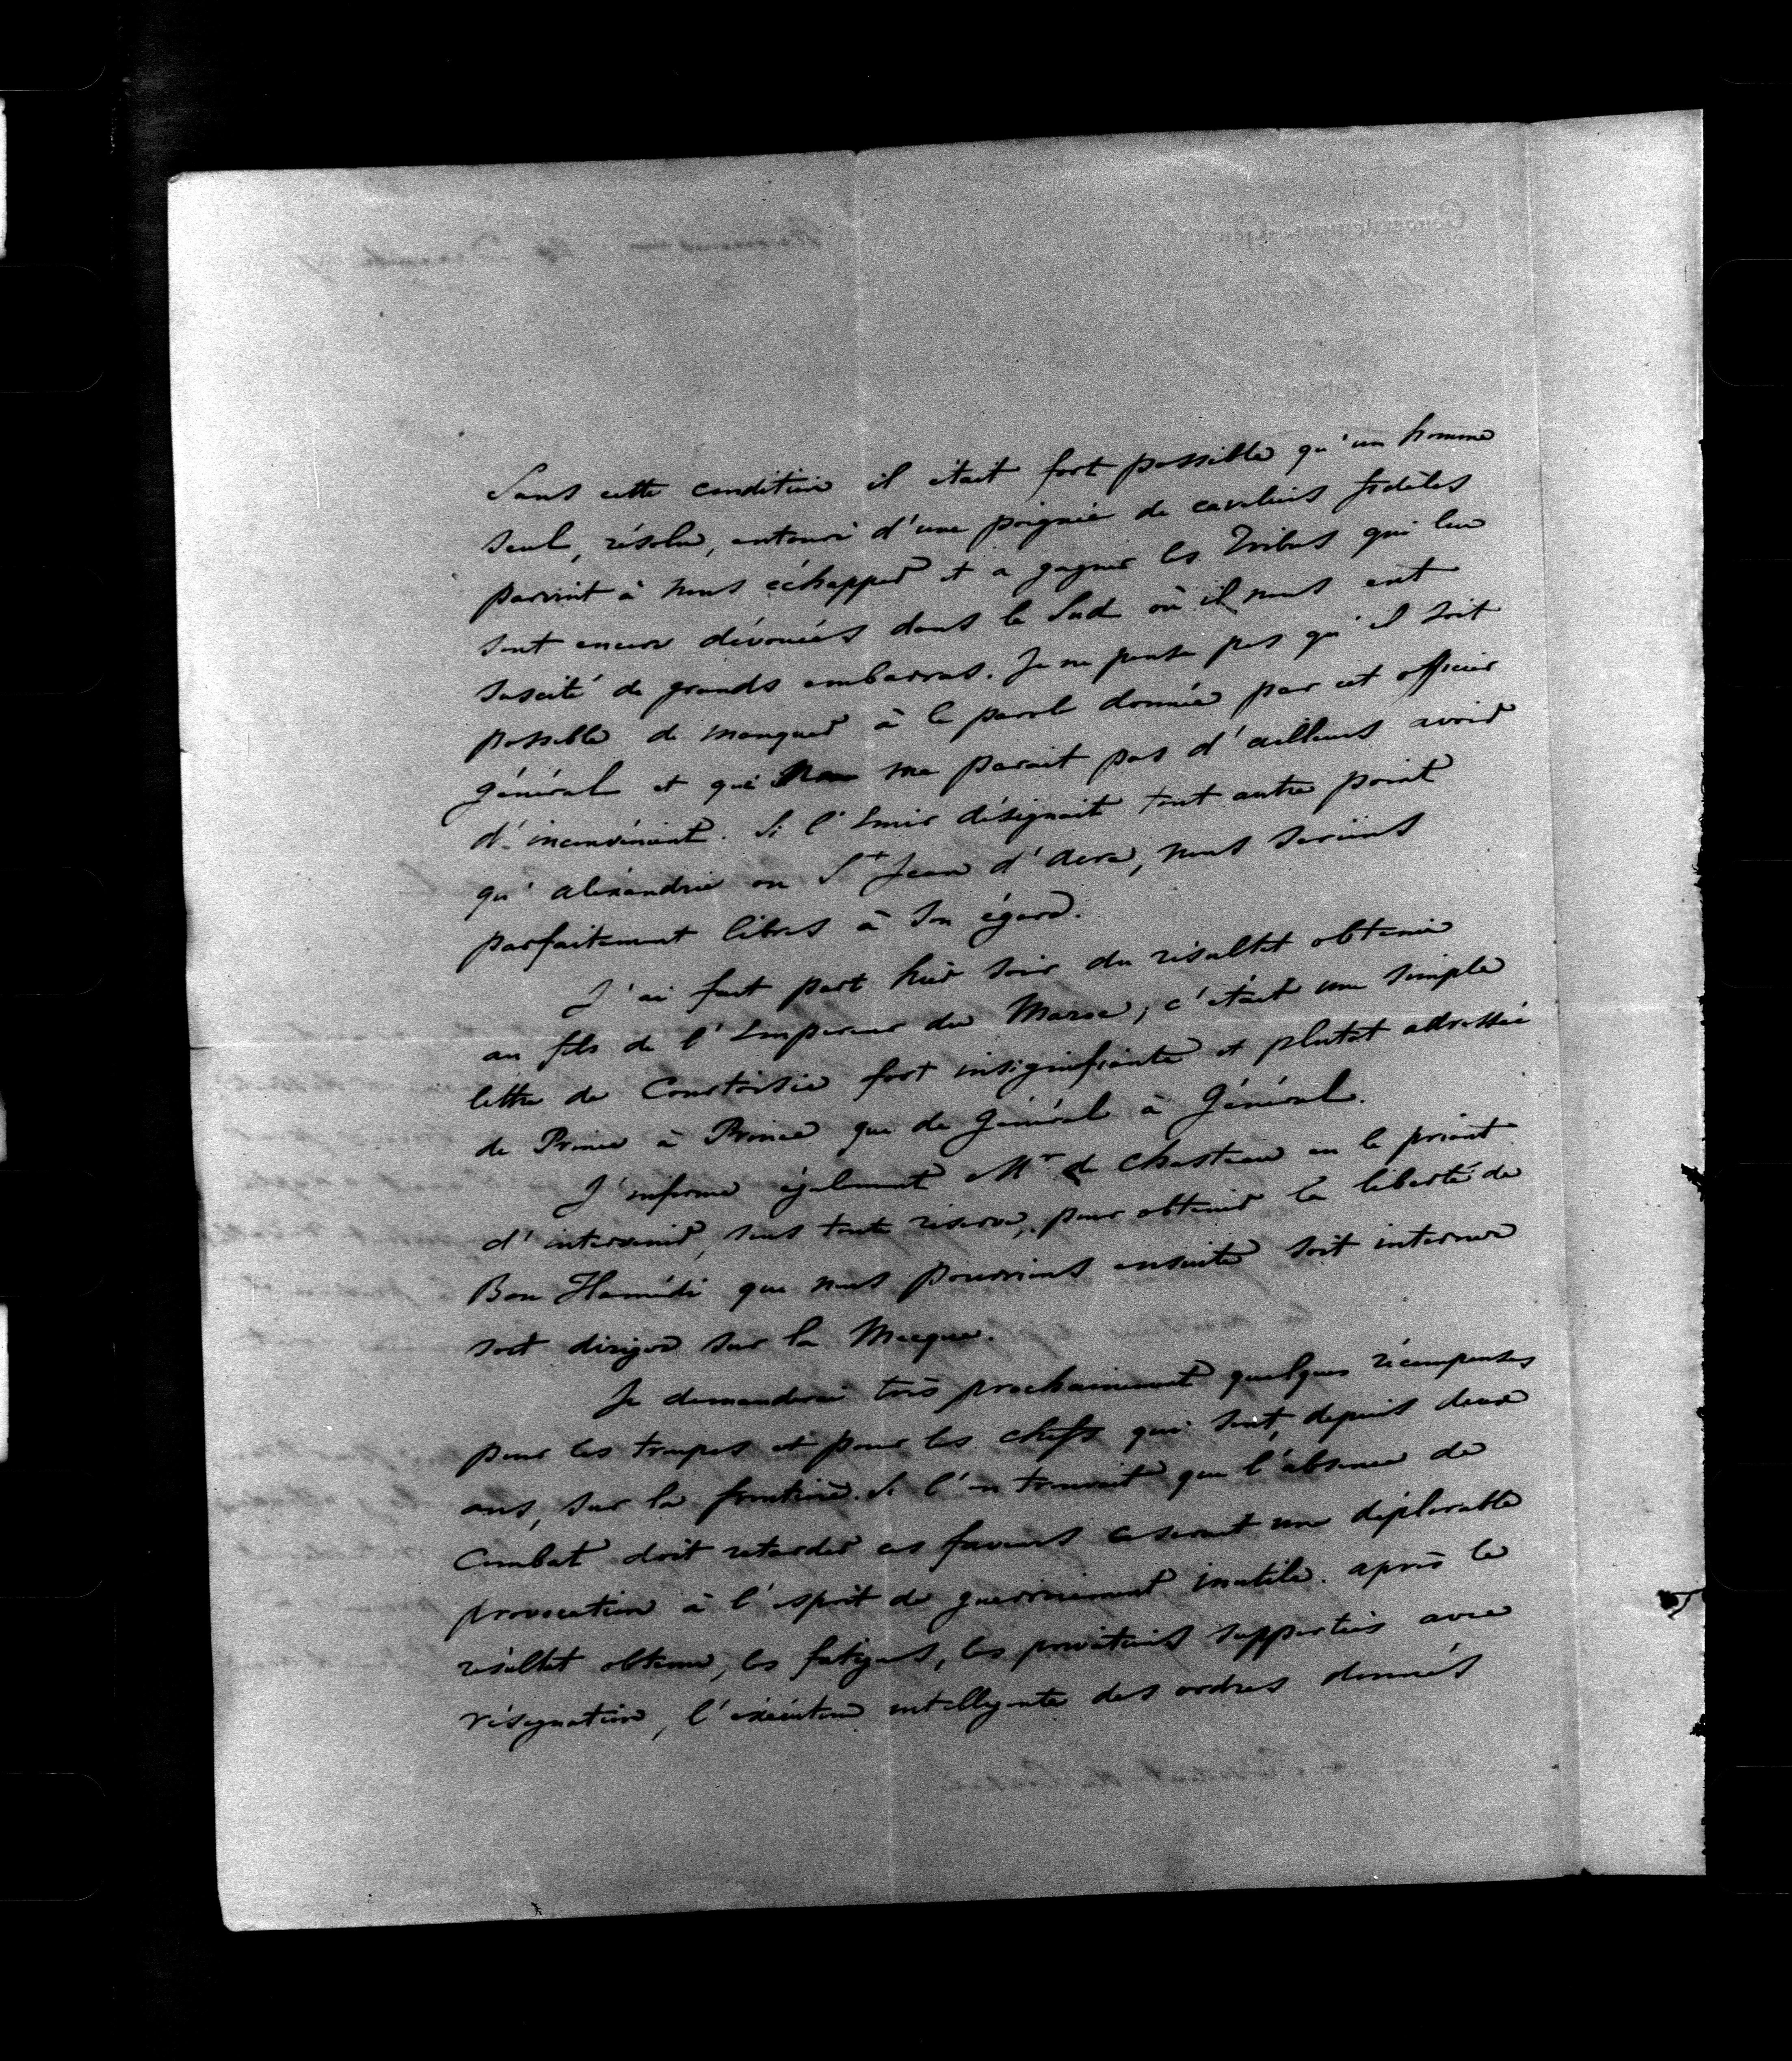 Sans cette condition il était fort possible qu'un homme
seul, résolu, entouré d'une poignée de cavaliers fidèles
parvint à nous échapper et a gagner les Tribus qui lui
sont encore dévouées dans le Sud où il nous eut
suscité de grands embarras. Je ne pense pas qu'il soit
possible de manquer à la parole donnée par cet officier
général et qui ne me parait pas d'ailleurs avoir
d'inconvénient. Si l'Emir désignait tout autre point
qu'alexandrie ou St Jean d'acre, nous serions
parfaitement libres à son égard.
J'ai fait part hier soir du résultat obtenu
au fils de l'Empereur du Maroc; c'était une simple
lettre de Courtoisie fort insignifiante et plutot adressée
de Prince à Prince que de Général à Général.
J'informe également Mr de Chasteau en le priant
d'intervenir, sous toute réserve, pour obtenir la liberté de
Bou Hamédi que nous pourrions ensuite soit interner
soit diriger sur la Mecque.
Je demanderai très prochainement quelques récompenses
pour les troupes et pour les chefs qui sont, depuis deux
ans, sur la frontière. Si l'on trouvait que l'absence de
Combat doit retarder ces faveurs ce serait une déplorable
provocation à l'esprit de guerroiement inutile. après le
résultat obtenu, les fatigues, les privations supportées avec
résignation, l'exécution intelligente des ordres donnés